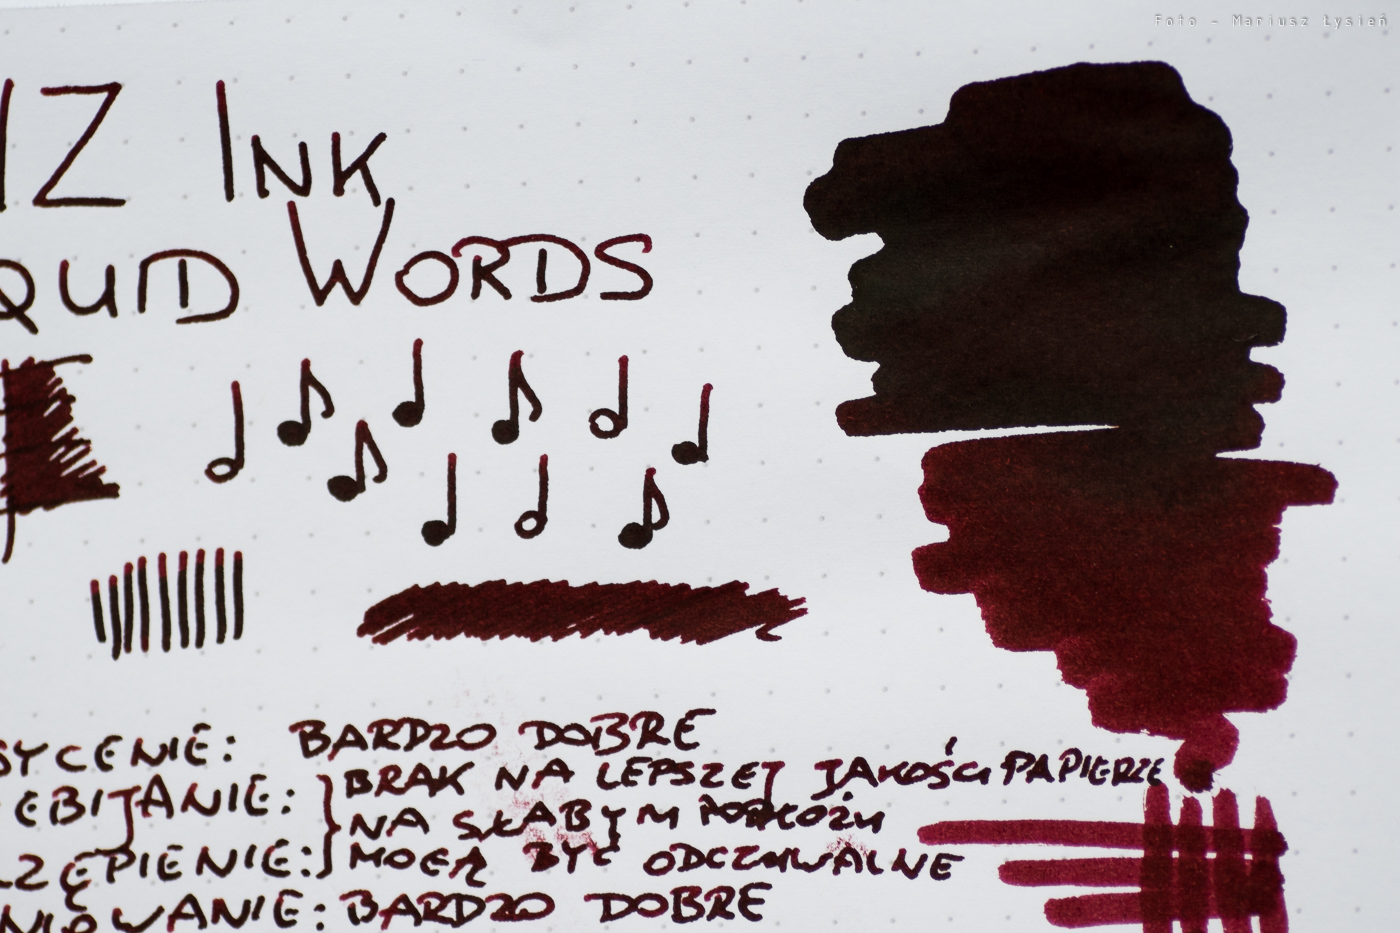 Foto - Mariusz Łysień
IZ INK
QUID WORDS
SYCENIE: BARDZO DOBRE
EBIJANIE: } BRAK NA LEPSZEJ JAKOŚCI PAPIERZE
NA SŁABYM PODŁOŻU
ZĘPIENIE: MOGĄ BYĆ ODCZUWALNE
NIOWANIE: BARDZO DOBRE